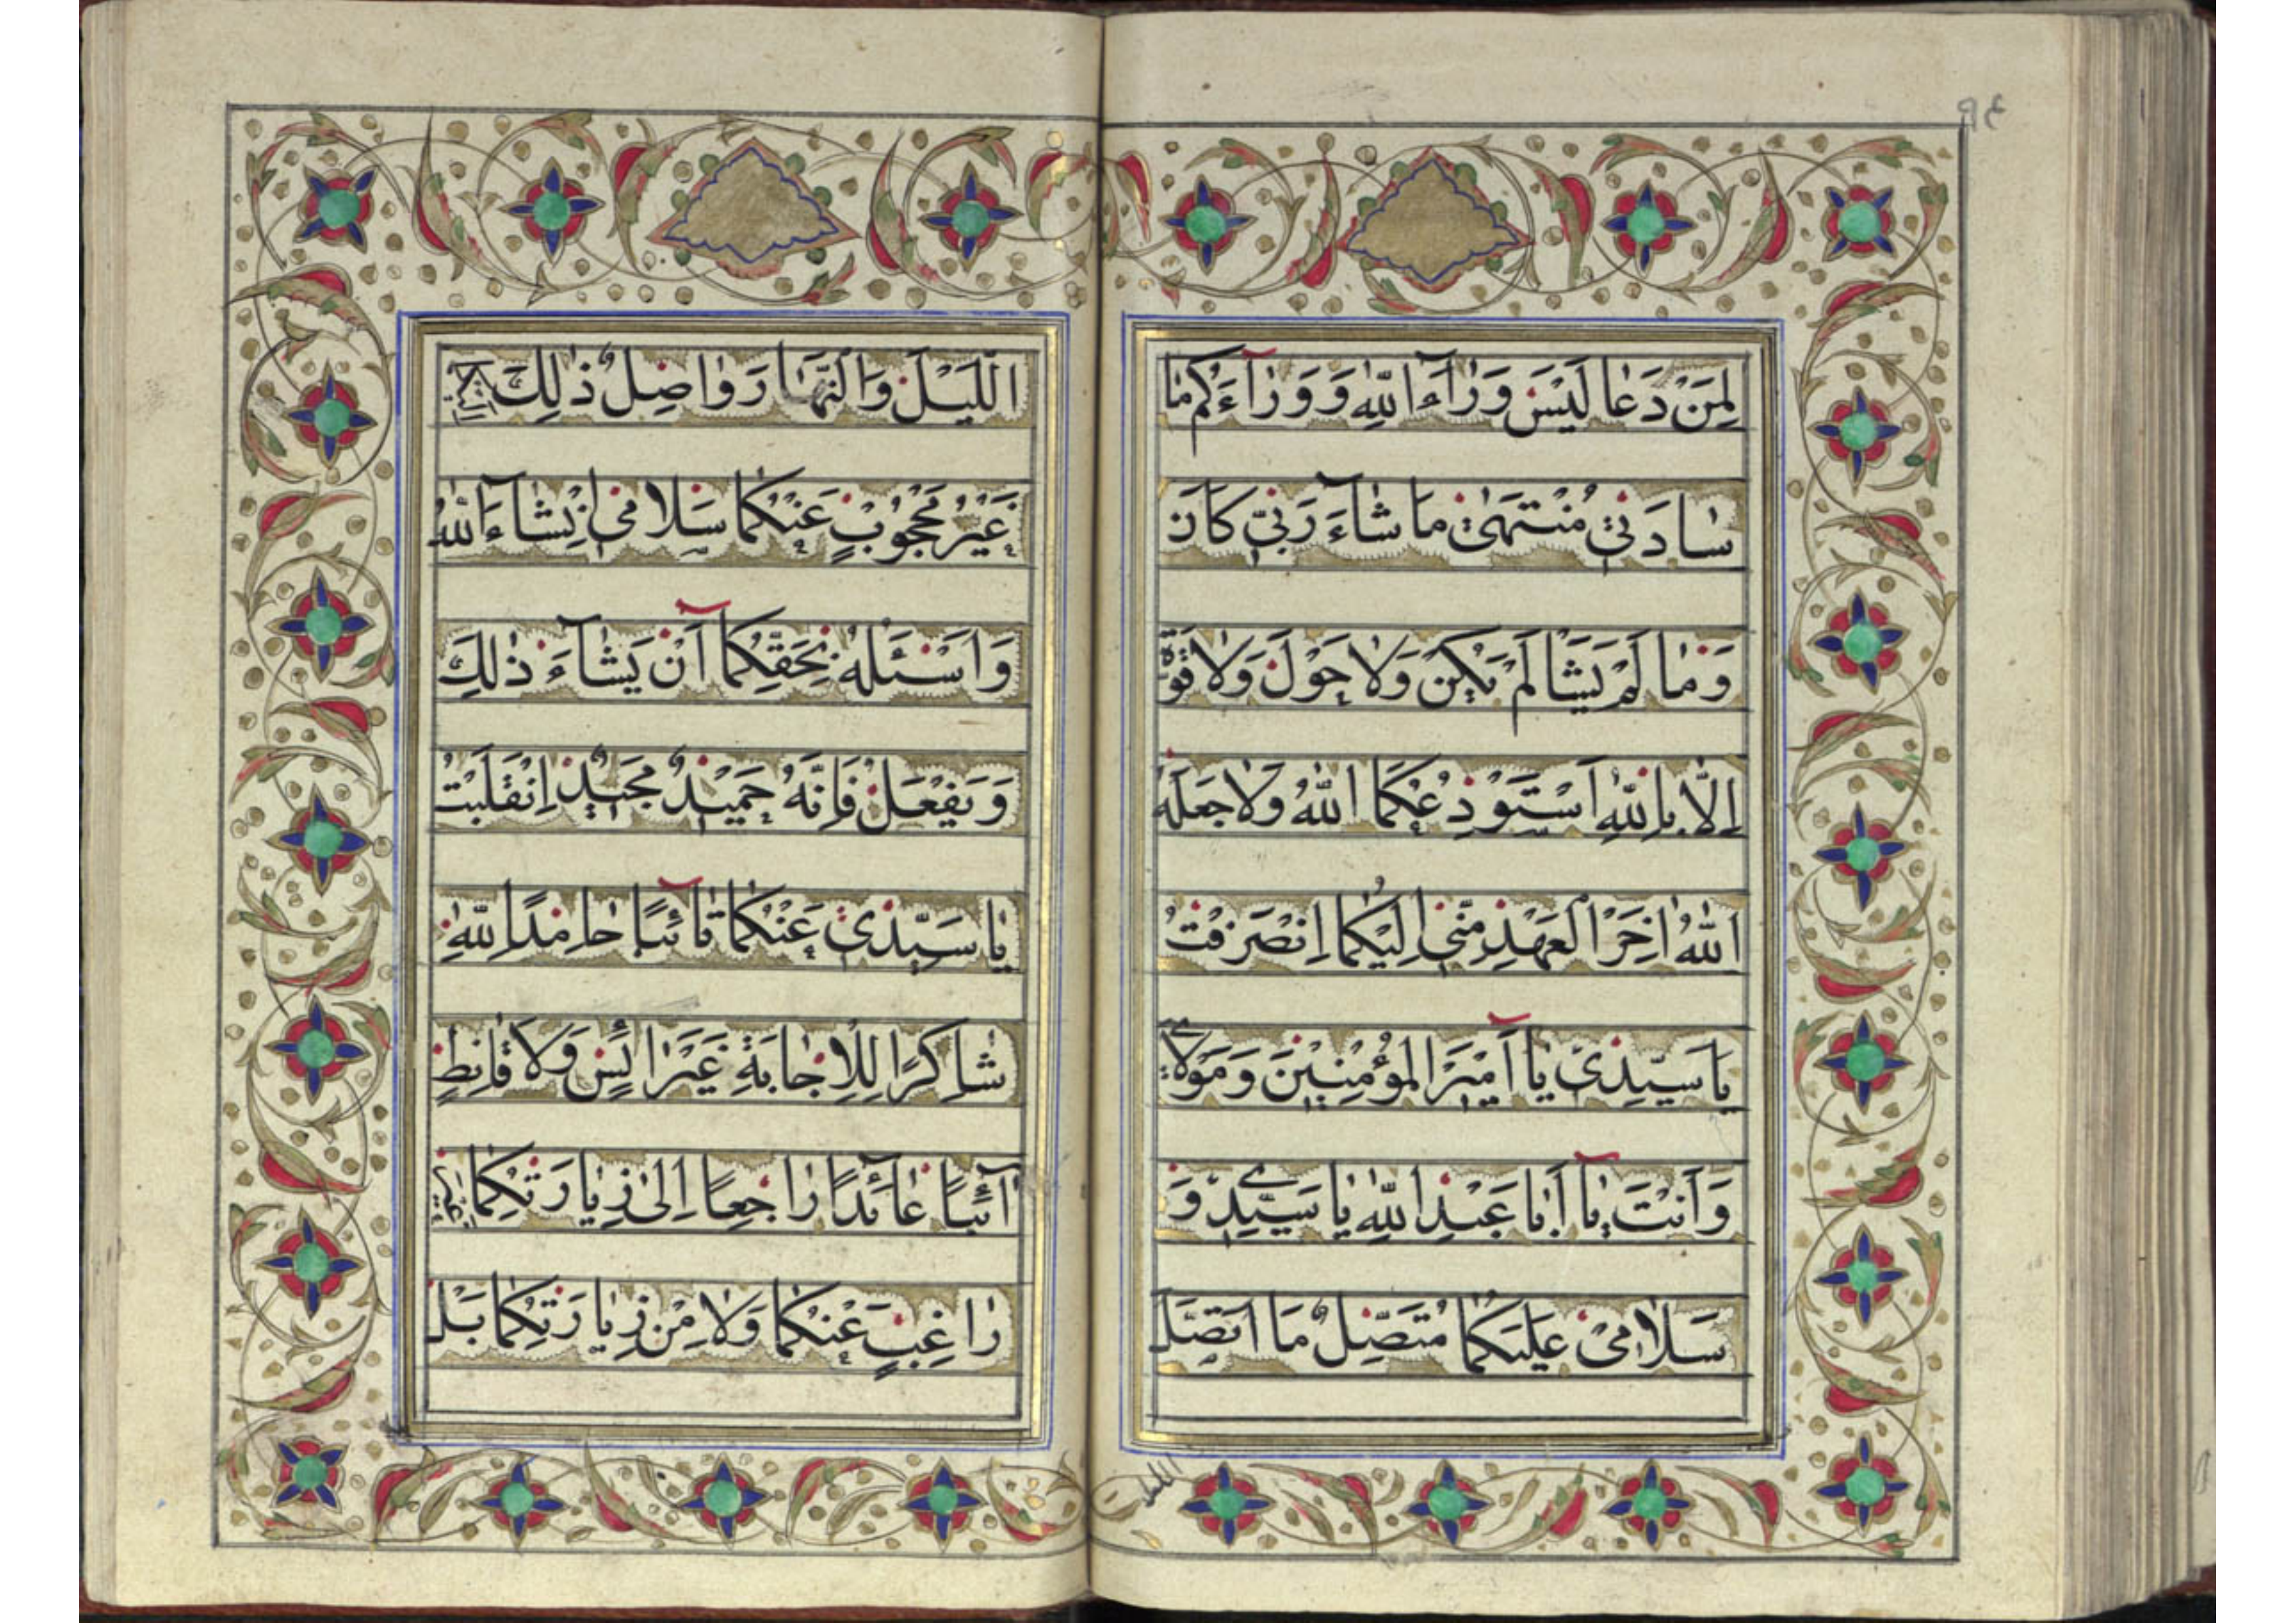 ٩٤
لِمَنْ دَعَا لَيْسَ وَرَآءَ اللّٰهِ وَ وَرَآءَكُمْ يَا
سَادَتِي مُنْتَهىٰ مَا شَآءَ رَبّي كَانَ
وَمَا لَمْ يَشَأْ لَمْ يَكُنْ وَلَا حَوْلَ وَلَا قُوَّةَ
اِلَّا بِاللّٰهِ اَسْتَوْدِعُكُمَا اللّٰهُ وَلَا جَعَلَهُ
اللّٰهُ اٰخِرَ الْعَهْدِ مِنّي اِلَيْكُمَا اِنْصَرَفْتُ
يَا سَيِّدِي يَآ اَمِيرَ الْمُؤْمِنِينَ وَمَوْلَايَ
وَاَنْتَ يَآ اَبَا عَبْدِ اللّٰهِ يَا سَيِّدِي وَ
سَلَامِي عَلَيْكُمَا مُتَّصِلٌ مَا اتَّصَلَ
الليل
اللَّيْلَ وَالنَّهَارَ وَاصِلٌ ذٰلِكَ اِلَيْكُمَا
غَيْرُ مَحْجُوبٍ عَنْكُمَا سَلَامِي اِنْشَآءَ اللّٰهُ
وَاَسْئَلُهُ بِحَقِّكُمَا اَنْ يَشَآءَ ذٰلِكَ
وَيَفْعَلَ فَاِنَّهُ حَمِيدٌ مَجِيدٌ اِنْقَلَبْتُ
يَا سَيِّدَيَّ عَنْكُمَا تَآئِبًا حَامِدًا لِلّٰهِ
شَاكِرًا لِلْاِجَابَةِ غَيْرَ اٰئِسٍ وَلَا قَانِطٍ
آئِبًا عَآئِدًا رَاجِعًا اِلىٰ زِيَارَتِكُمَا غَيْرَ
رَاغِبٍ عَنْكُمَا وَلَا مِنْ زِيَارَتِكُمَا بَلْ